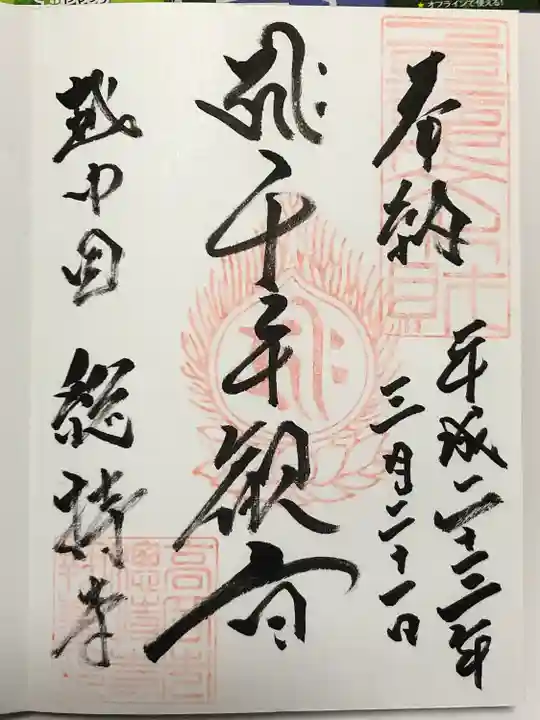 オフラインで使える!
奉納
平成二十三年
三月二十一日
千手観音
越中国 総持寺